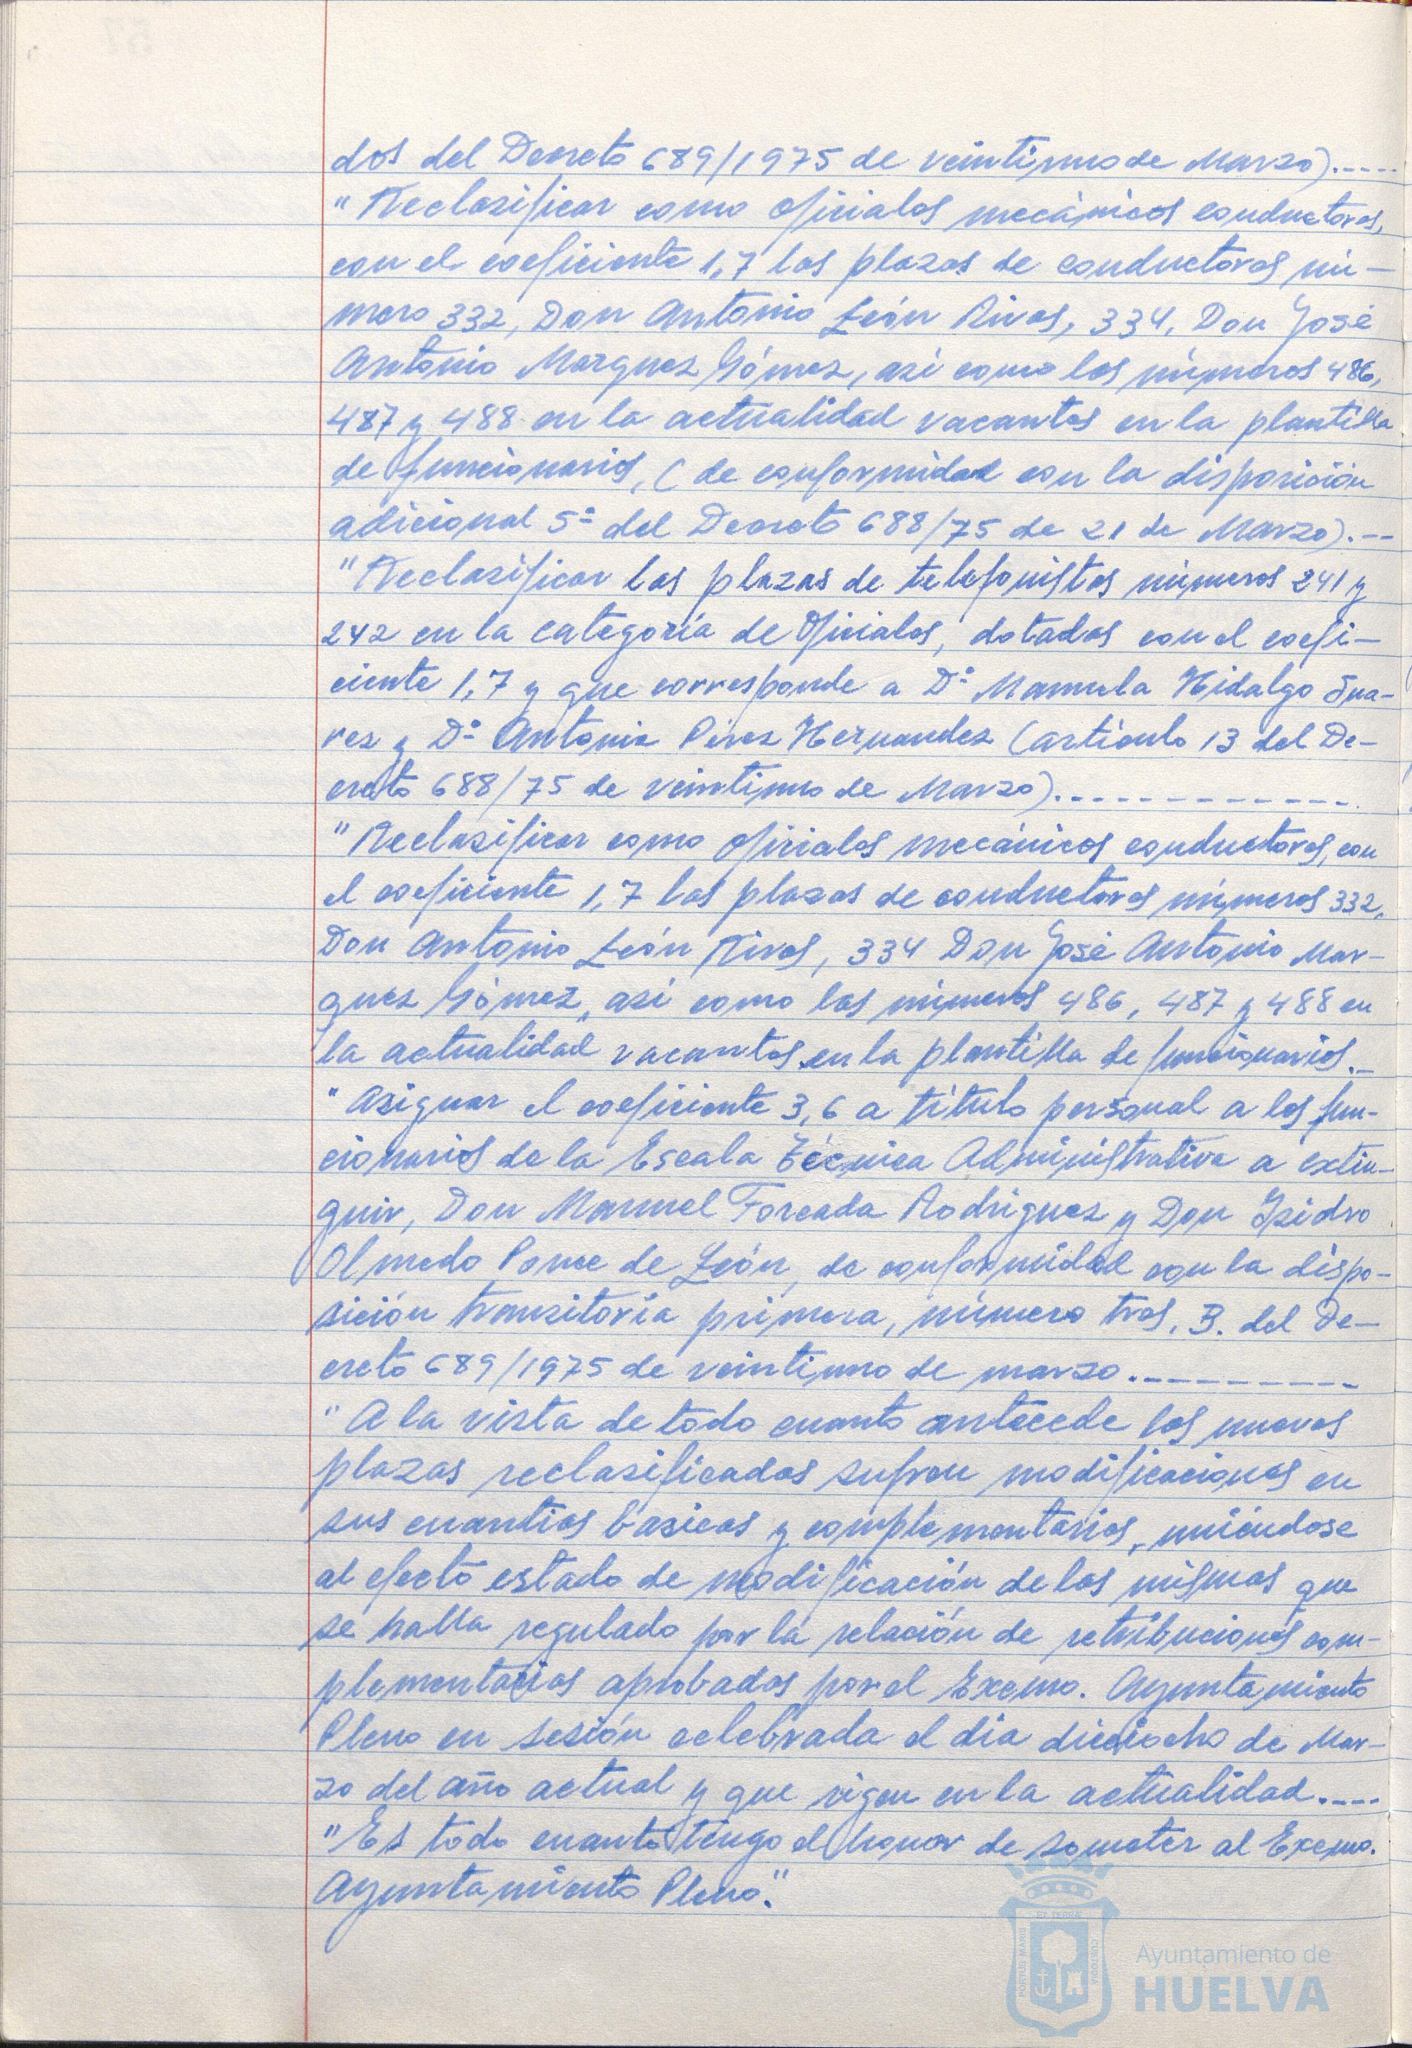 dos del Decreto 689/1975 de veintiuno de Marzo).----
"Reclasificar como oficiales mecánicos conductores,
con el coeficiente 1,7 las plazas de conductores nú-
mero 332, Don Antonio León Rivas, 334, Don José
Antonio Marquez Gómez, asi como las números 486,
487 y 488 en la actualidad vacantes en la plantilla
de funcionarios, (de conformidad con la disposición
adicional 5ª del Decreto 688/75 de 21 de Marzo).--
"Reclasificar las plazas de telefonistas números 241 y
242 en la categoría de Oficiales, dotadas con el coefi-
ciente 1,7 y que corresponde a Dª Manuela Hidalgo Sua-
rez y Dª Antonia Pérez Hernandez (artículo 13 del De-
creto 688/75 de veintiuno de Marzo).-------------
"Reclasificar como oficiales mecánicos conductores, con
el coeficiente 1,7 las plazas de conductores números 332,
Don Antonio León Rivas, 334 Don José Antonio Mar-
quez Gómez, así como las números 486, 487 y 488 en
la actualidad vacantes en la plantilla de funcionarios.-
"Asignar el coeficiente 3,6 a título personal a los fun-
cionarios de la Escala Técnica Administrativa a extin-
guir, Don Manuel Forcada Rodriguez y Don Isidro
Olmedo Ponce de León, de conformidad con la dispo-
sición transitoria primera, número tres, 3. del De-
creto 689/1975 de veintiuno de marzo.----------
"A la vista de todo cuanto antecede las nuevas
plazas reclasificadas sufren modificaciones en
sus cuantias básicas y complementarias, uniéndose
al efecto estado de modificación de las mismas que
se halla regulado por la relación de retribuciones com-
plementarias aprobadas por el Excmo. Ayuntamiento
Pleno en sesión celebrada el dia dieciocho de Mar-
zo del año actual y que rigen en la actualidad.----
"Es todo cuanto tengo el honor de someter al Excmo.
Ayuntamiento Pleno".
PORTUS MARIS ET TERRAE CUSTODIA
Ayuntamiento de
HUELVA